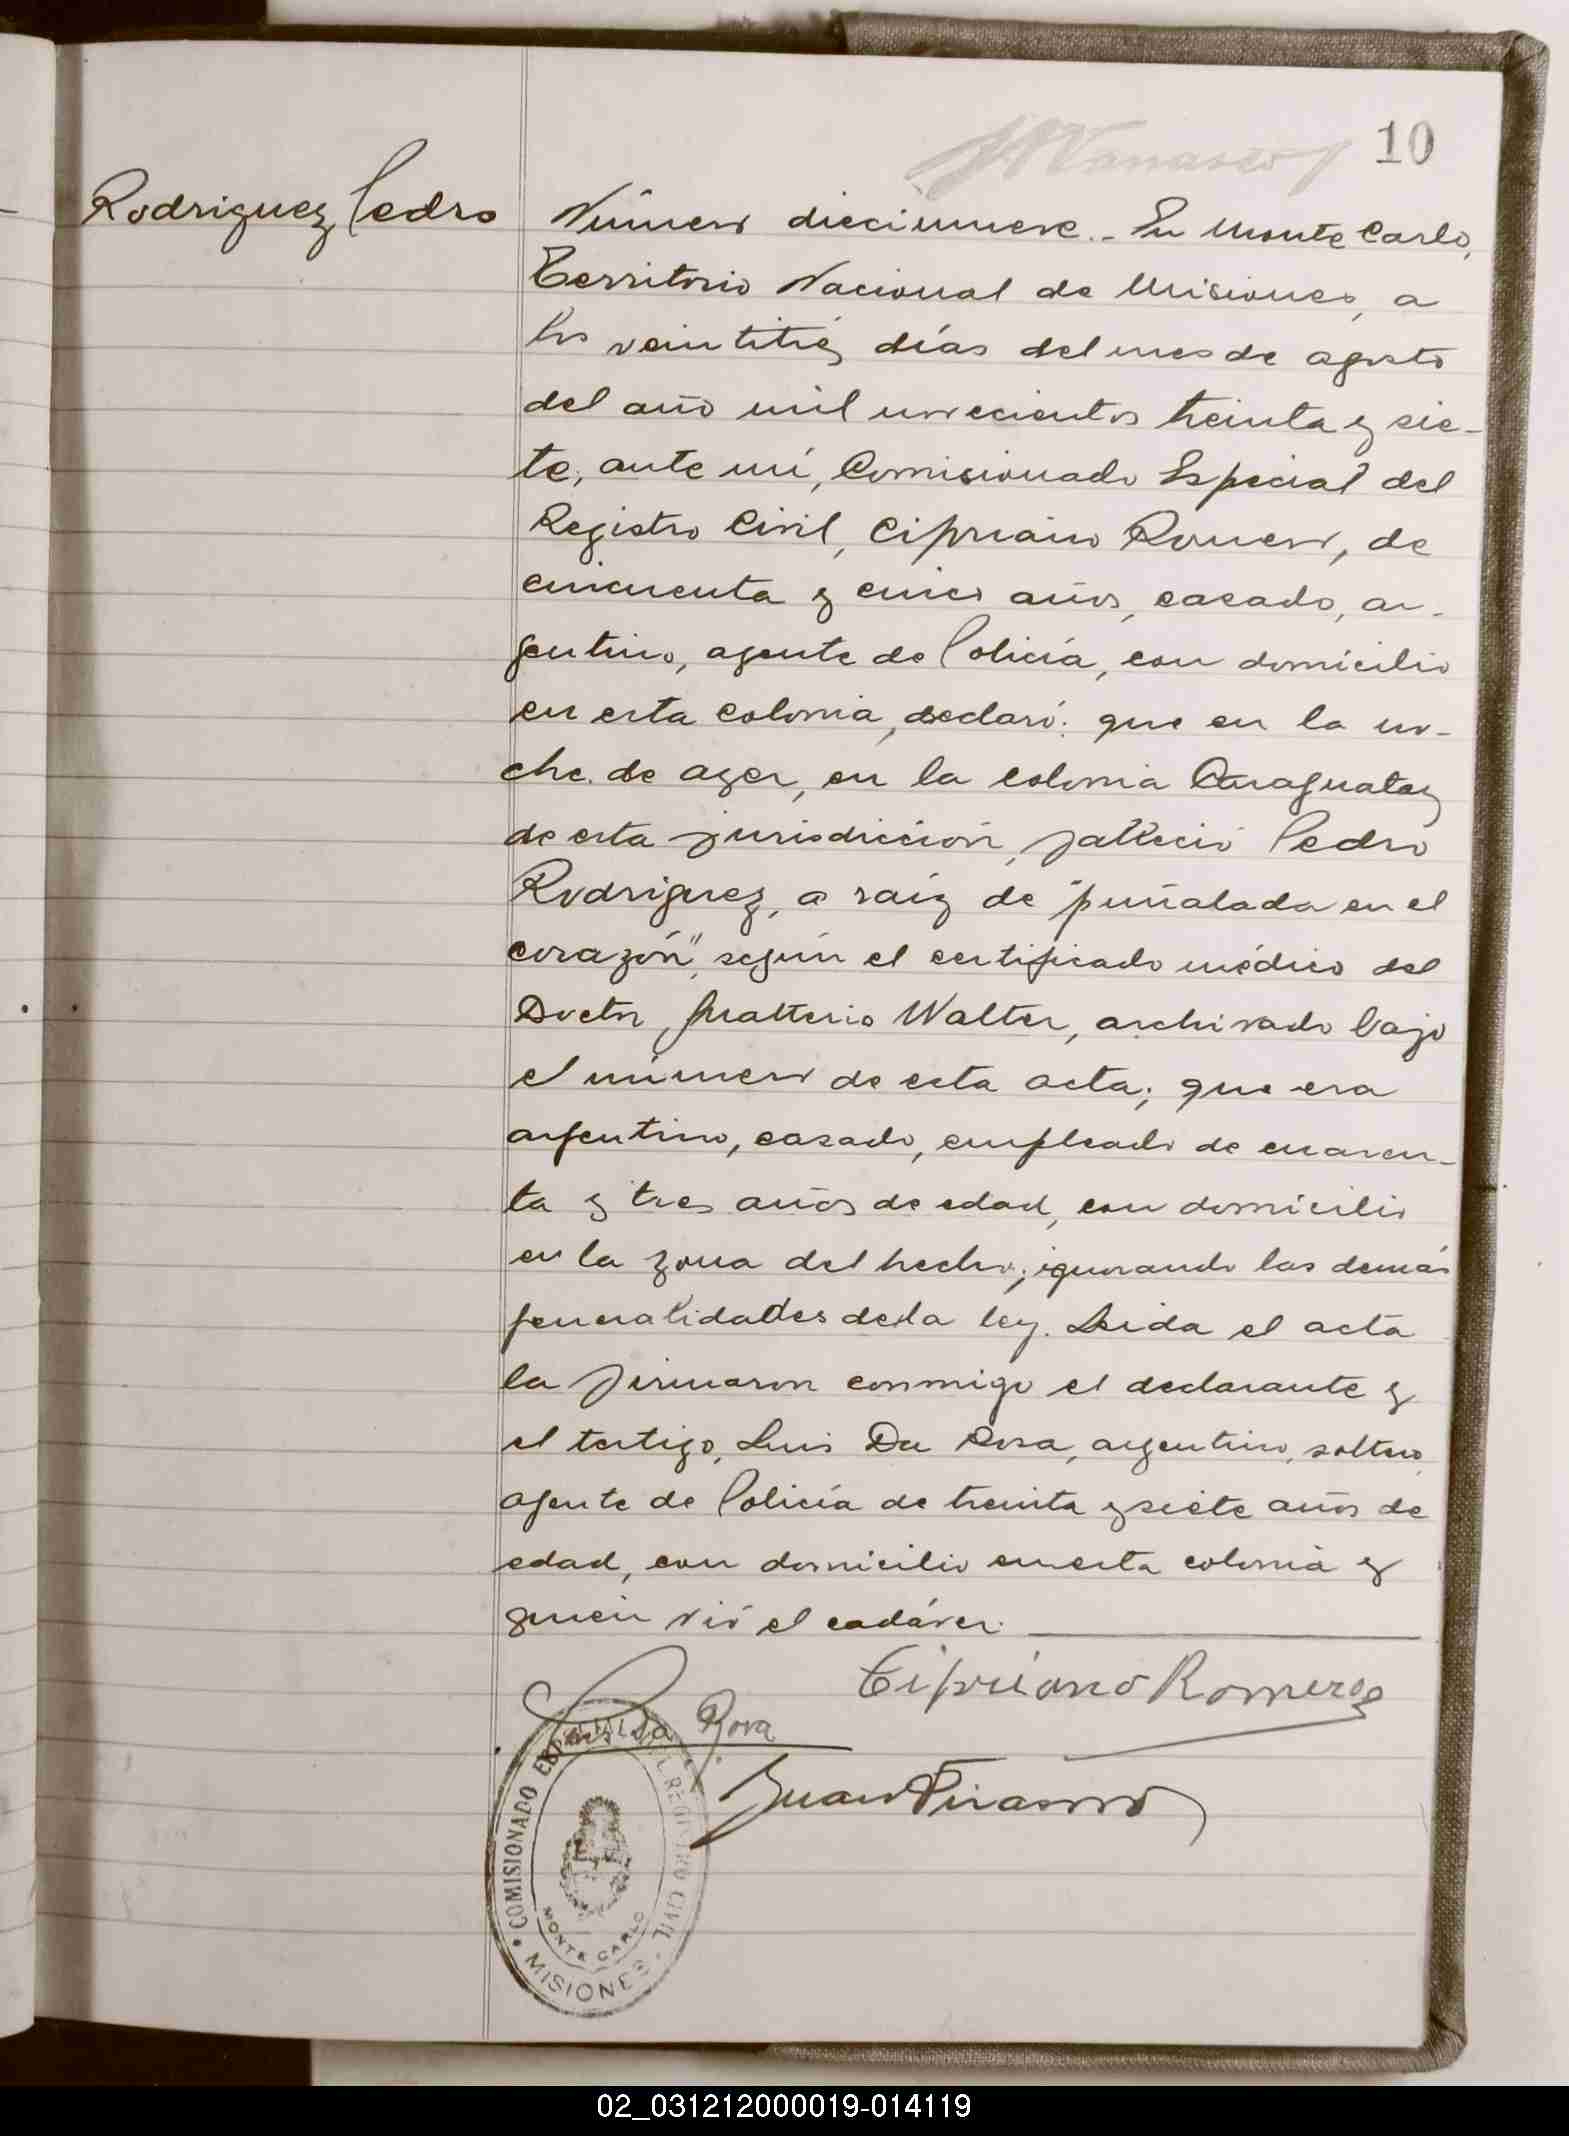 10
Rodriguez Pedro
Número diecinueve.- En Monte Carlo,
Territorio Nacional de Misiones, a
los veintitrés días del mes de agosto
del año mil novecientos treinta y sie-
te, ante mí, Comisionado Especial del
Registro Civil, Cipriano Romero, de
cincuenta y cinco años, casado, ar-
gentino, agente de Policía, con domicilio
en esta colonia, declaró: que en la no-
che de ayer, en la colonia Caraguatay
de esta jurisdicción, falleció Pedro
Rodriguez, a raíz de "puñalada en el
corazón", según el certificado médico del
Doctor Walter, archivado bajo
el número de esta acta; que era
argentino, casado, empleado de cuaren-
ta y tres años de edad, con domicilio
en la zona del hecho; ignorando las demás
generalidades de la ley. Leída el acta
la firmaron conmigo el declarante y
el testigo, Luis Da Rosa, argentino, soltero,
agente de Policía de treinta y siete años de
edad, con domicilio en esta colonia y
quien vió el cadáver.
Cipriano Romero
Luis Da Rosa
Juan
COMISIONADO ESPECIAL DEL REGISTRO CIVIL
MONTE CARLO
MISIONES
02_031212000019-014119